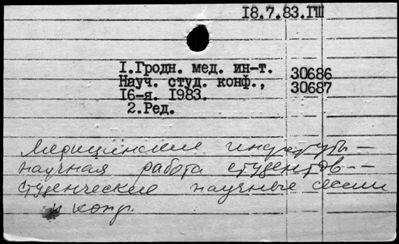 18.7.83.ГШ
I.Гродн. мед. ин-т. 30686
Науч. студ. конф., 30687
16-я. 1983.
2.Ред.
Медицинские институты —
научная работа студентов —
студенческие научные сессии
и конф.